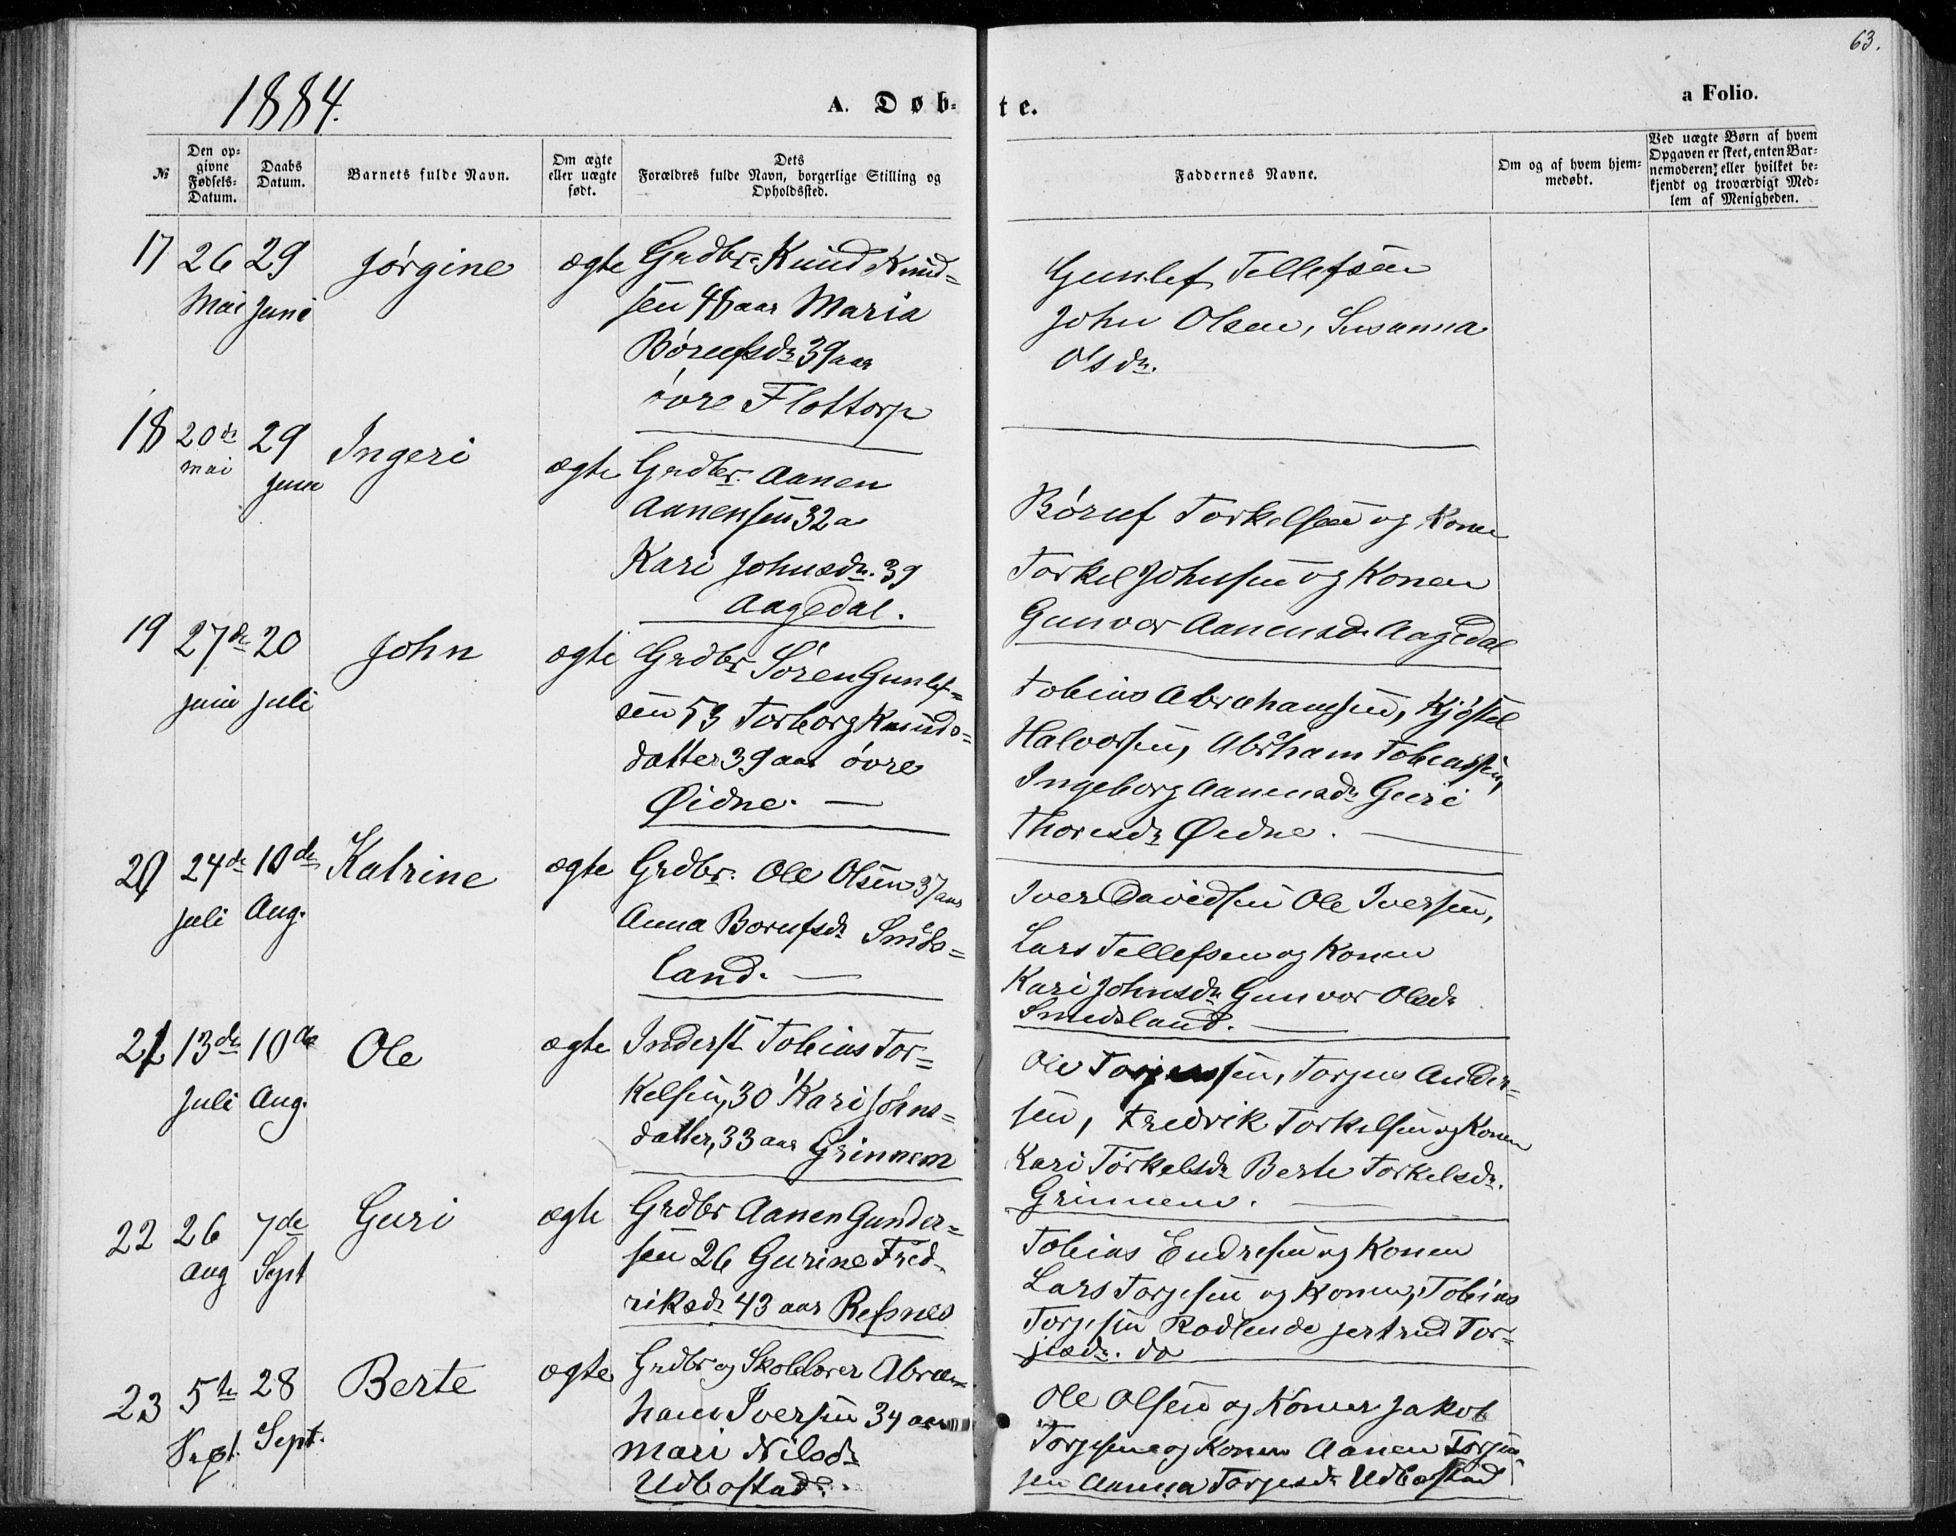 63.
1884.
A. Døb-
te.
a Folio.
№
Den op-
givne
Fødsels-
Datum.
Daabs
Datum.
Barnets fulde Navn.
Om ægte
eller uægte
født.
Dets
Forældres fulde Navn, borgerlige Stilling og
Opholdssted.
Faddernes Navne.
Om og af hvem hjem-
medøbt.
Ved uægte Børn af hvem
Opgaven er skeet, enten Bar-
nemoderen, eller hvilket be-
kjendt og troværdigt Med-
lem af Menigheden.
17 26 29 Jørgine ægte Grdbr. Knud Knud=
Mai Juni sen 48 aar Maria
Børufsdr 39 aar
øvre Flottorp
Gunlef Tellefsen
John Olsen, Susanna
Olsdr.
18 20de 29 Ingeri ægte Grdbr. Aanen
mai Juni Aanensen 32 a
Kari Johnsdr. 39
Aagedal.
Børuf Torkelsen og Kone
Torkel Johnsen og Konen
Gunvor Aanensdr Aagedal
19 27de 20 John ægte Grdbr Søren Gunlef=
juni juli sen 53 Torborg Knuds=
datter 39 aar øvre
Øidne. —
Tobias Abrahamsen, Kjøstel
Halvorsen, Abraham Tobiassen,
Ingeborg Aanensdr Guri
Thoresdr Øidne. —
20 24de 10de Katrine ægte Grdbr. Ole Olsen 37 aar
juli Aug. Anna Borufsdr Smeds=
land. —
Iver Davidsen Ole Iversen,
Lars Tellefsen og Konen
Kari Johnsdr Gunvor Olsdr
Smedsland. —
21 13de 10de Ole ægte Inderst Tobias Tor=
Juli Aug. kelsen, 30 Kari Johns=
datter, 33 aar Grinnem
Ole Torjussen, Torjus Ander=
sen, Fredrik Torkelsen og Konen
Kari Torkelsdr Berte Torkelsdr.
Grinnem. —
22 26 7de Guri ægte Grdbr Aanen Gunder=
aug Sept sen 26 Gurine Fred-
riksdr 43 aar Refsnes
Tobias Endresen og Konen
Lars Torjesen og Konen, Tobias
Torjesen Rodlende Jertrud Tor=
jesdr. do
23 5te 28 Berte ægte Grdbr og Skolelærer Abra=
Sept. Sept. ham Iversen 34 aar
Mari Nilsdr
Udbostad.
Ole Olsen og Konen Jakob
Torjesen og Konen Aanen Torju
sen Aanna Torjesdr Udbostad